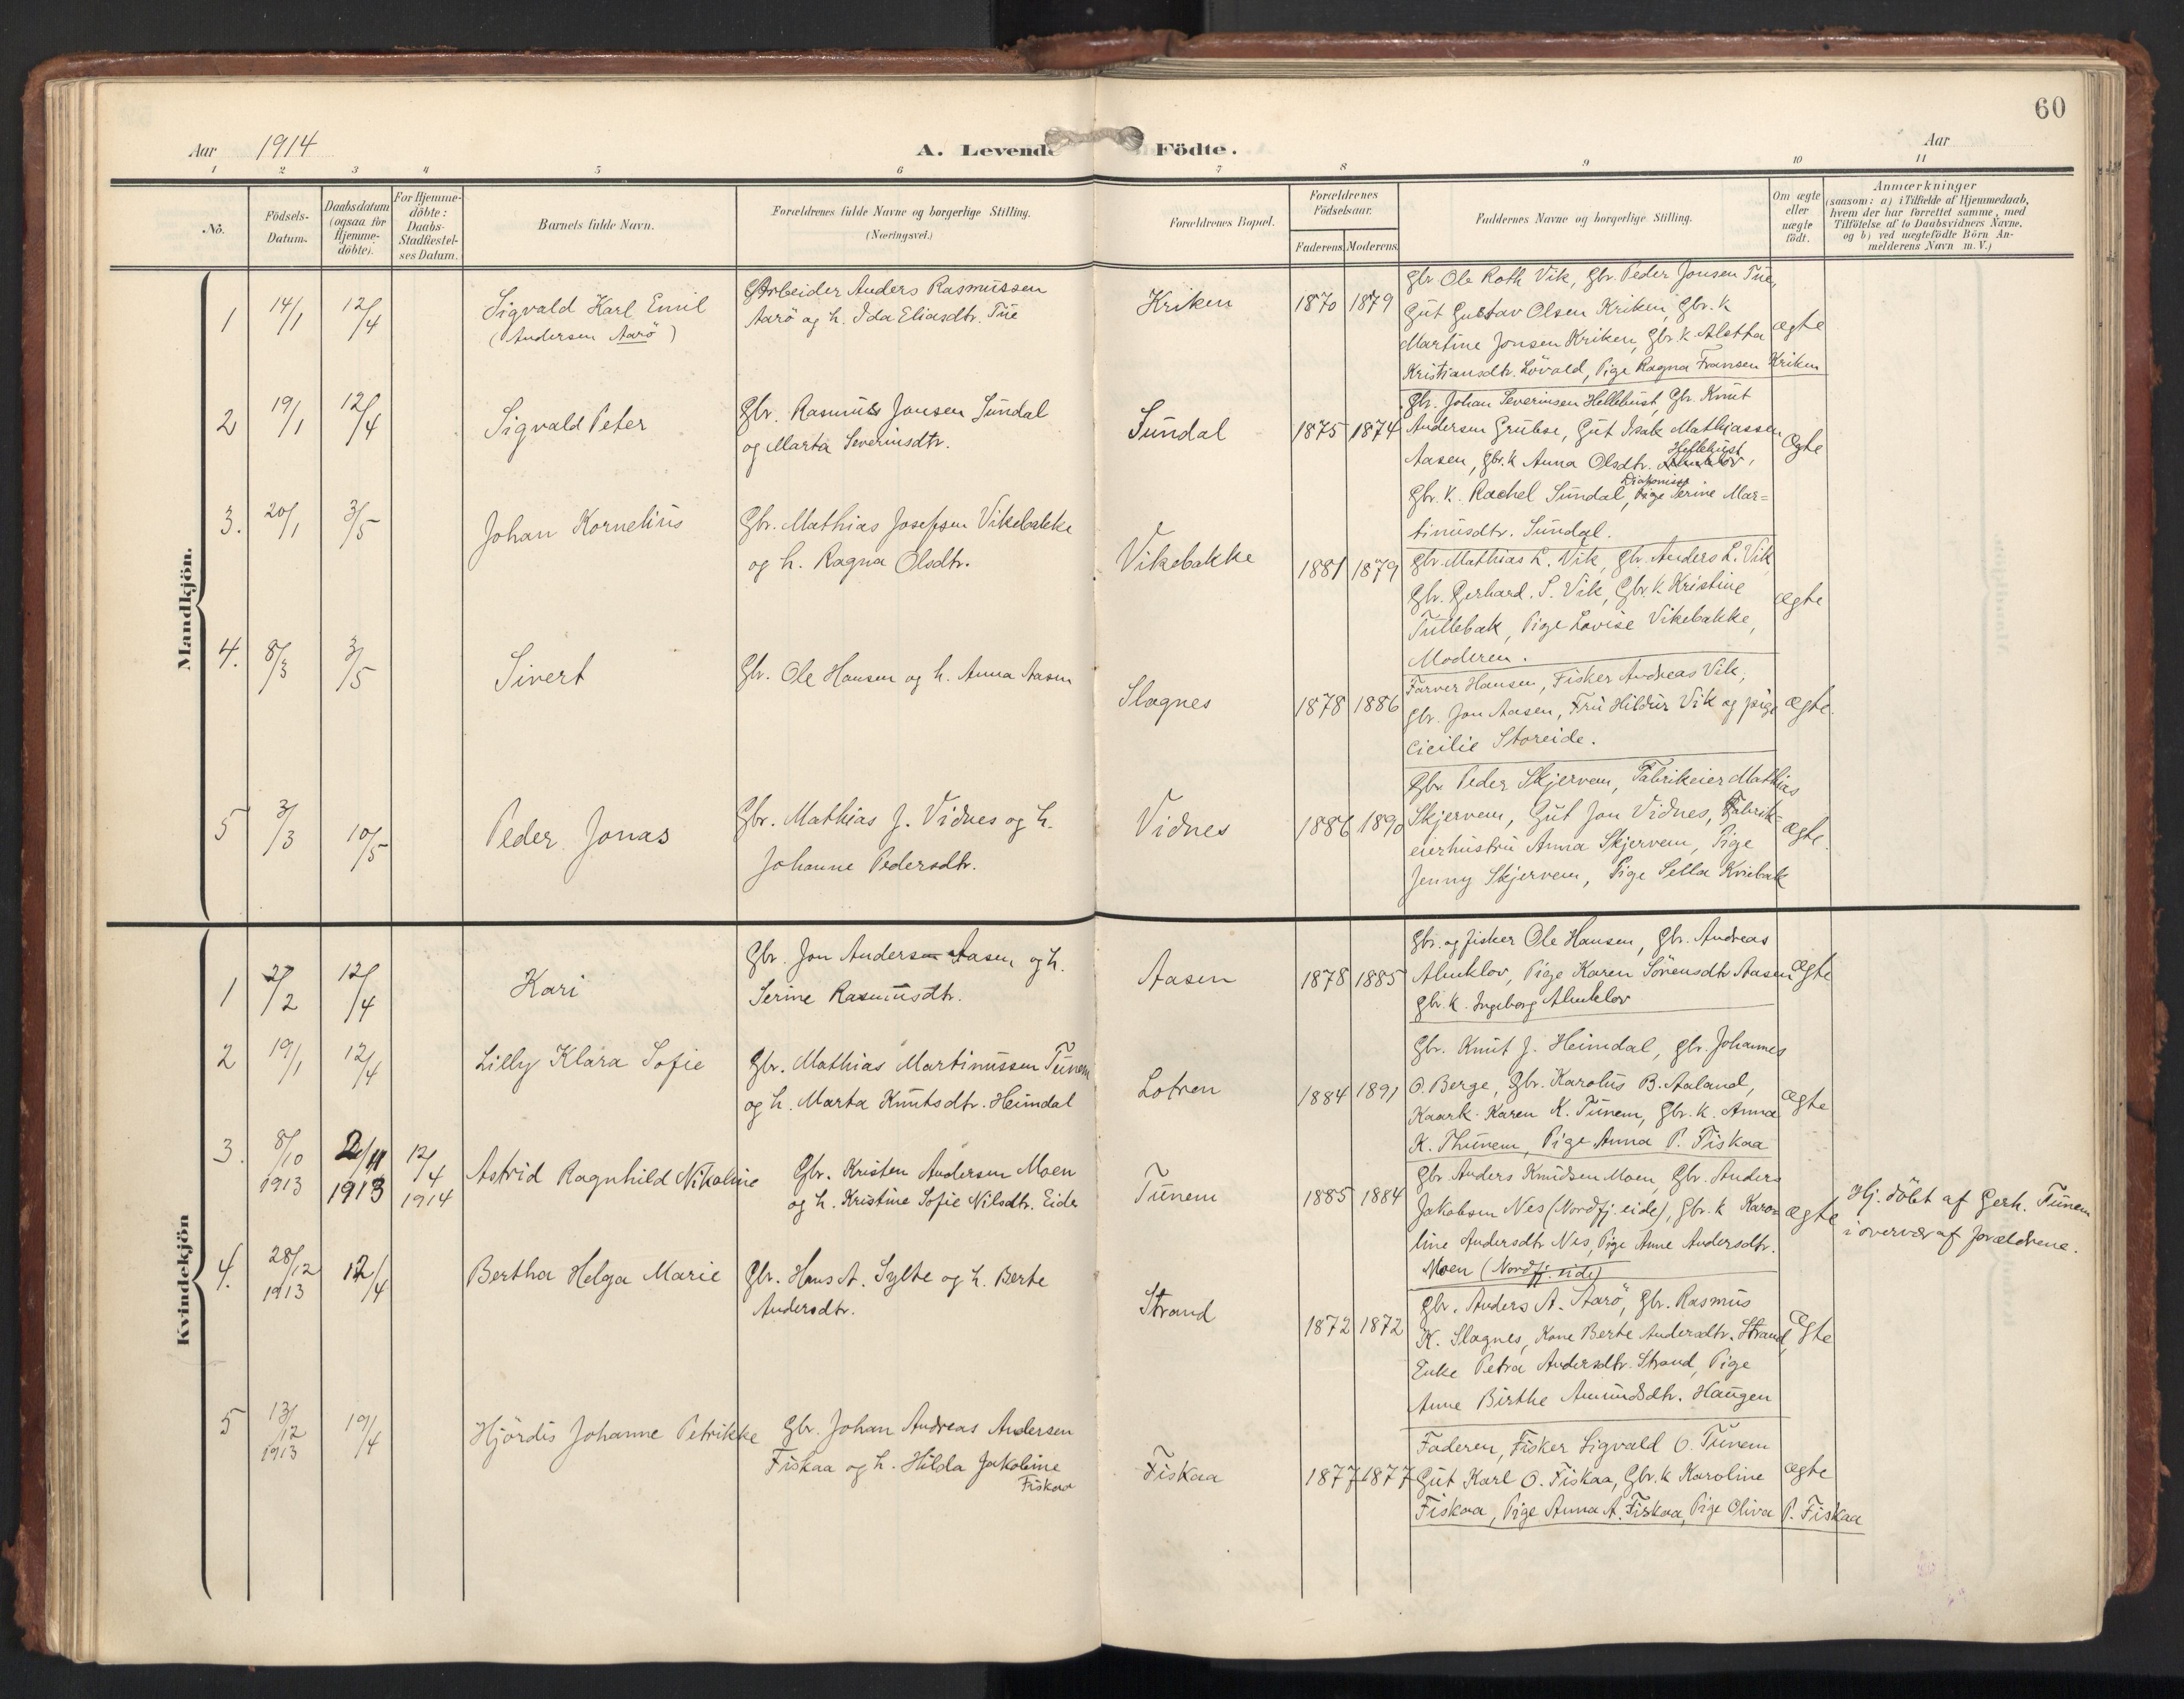 60
Aar 1914
A. Levende Födte.
Aar
1 2 3 4 5 6 7 8 9 10 11
No.
Födsels-
Datum.
Daabsdatum
(ogsaa for
Hjemme-
döbte).
For Hjemme-
döbte:
Daabs-
Stadfæstel-
ses Datum.
Barnets fulde Navn.
Forældrenes fulde Navne og borgerlige Stilling.
(Næringsvei.)
Forældrenes Bopæl.
Forældrenes
Födselsaar.
Faderens. Moderens.
Faddernes Navne og borgerlige Stilling.
Om ægte
eller
uægte
födt.
Anmærkninger
(saasom: a) i Tilfælde af Hjemmedaab,
hvem der har forrettet samme, med
Tilföielse af to Daabsvidners Navne,
og b) ved uægtefödte Börn An-
melderens Navn m. V.)
Mandkjön.
1 14/1 12/4
Sigvald Karl Emil
(Andersen Aarö)
Arbeider Anders Rasmussen
Aarö og h. Ida Eliasdtr. Tue
Kriken
1870 1879
Gbr Ole Roth Vik, Gbr. Peder Jonsen Tue,
Gut Gustav Olsen Kriken, Gbr. k
Martine Jonsen Kriken, Gbr. k. Aletta
Kristiansdtr. Lövold, Pige Ragna Fransen Kriken
ægte
2 19/1 12/4
Sigvald Peter
Gbr. Rasmus Jonsen Sundal
og Marta Severinsdtr.
Sundal
1875 1874
Gbr. Johan Severinsen Hellehust, Gbr. Knut
Andersen Grubse, Gut Isak Mathiassen
Aasen, Gbr. k Anna Olsdtr. Hellehust,
Gbr. K. Rachel Sundal, Diakonisse Serine Mar=
tinusdtr. Sundal.
Ægte
3. 20/1 3/5
Johan Kornelius
Gbr. Mathias Josefsen Vikebakke
og h. Ragna Olsdtr.
Vikebakke
1881 1879
Gbr. Mathias L. Vik, Gbr. Anders L. Vik
Gbr. Gerhard. S. Vik, Gbr. k Kristine
Tullebak, Pige Lovise Vikebakke,
Moderen.
ægte
4. 8/3 3/5
Sivert
Gbr. Ole Hansen og h. Anna Aasen
Slagnes
1878 1886
Farver Hansen, Fisker Andreas Vik,
Gbr. Jon Aasen, Fru Hildur Vik og pige
Cicilie Storeide.
Ægte.
5 3/3 10/5
Peder Jonas
Gbr. Mathias J. Vidnes og h.
Johanne Pedersdtr.
Vidnes
1886 1890
Gbr. Peder Skjervem, Fabrikeier Mathias
Skjervem, Gut Jon Vidnes, Fabrik=
eierhustru Anna Skjervem, Pige
Jenny Skjervem, Pige Sella Kviebak
ægte.
Kvindekjön
1 2/2 12/4
Kari
Gbr. Jon Andersen Aasen og h.
Serine Rasmusdtr.
Aasen
1878 1885
Gbr. og fisker Ole Hansen, Gbr. Andreas
Almklov, Pige Karen Sörensdtr Aasen
Gbr. k. Ingeborg Almklov
Ægte
2 19/1 12/4
Lilly Klara Sofie
Gbr. Mathias Martinussen Tunem
og h. Marta Knutsdtr. Heimdal
Lotren
1884 1891
Gbr. Knut J. Heimdal, Gbr. Johannes
O. Berge, Gbr. Karolus B. Aaland,
Kaark. Karen K. Tunem, Gbr. k. Anna
K. Thunem, Pige Anna P. Fiskaa
ægte
3. 8/10 1913 2/11 1913 12/4 1914
Astrid Ragnhild Nikoline
Gbr. Kristen Andersen Moen
og h. Kristine Sofie Nilsdtr. Eide
Tunem
1885 1884
Gbr Anders Knudsen Moen, Gbr. Anders
Jakobsen Nes (Nordfj. eide), Gbr. k Karo=
line Andersdtr Nes, Pige Anne Andersdtr.
Moen (Nordfj. eide)
ægte
Hj. döbt af Gerh. Tunem
i overvær af forældrene.
4. 28/12 1913 12/4
Bertha Helga Marie
Gbr. Hans A. Sylte og h. Berte
Andersdtr.
Strand
1872 1872
Gbr. Anders A. Aarö, Gbr. Rasmus
K. Slagnes, Kone Berte Andersdtr. Strand,
Enke Petra Andersdtr. Strand, Pige
Anne Birthe Amundsdtr. Haugen
Ægte
5 13/12 1913 19/4
Hjördis Johanne Petrikke
Gbr. Johan Andreas Andersen
Fiskaa og h. Hilda Jakobine
Fiskaa
Fiskaa
1877 1877
Faderen, Fisker Sigvald O. Tunem
Gut Karl O. Fiskaa, Gbr. k Karoline
Fiskaa, Pige Anna A. Fiskaa, Pige Oliva P. Fiskaa
ægte